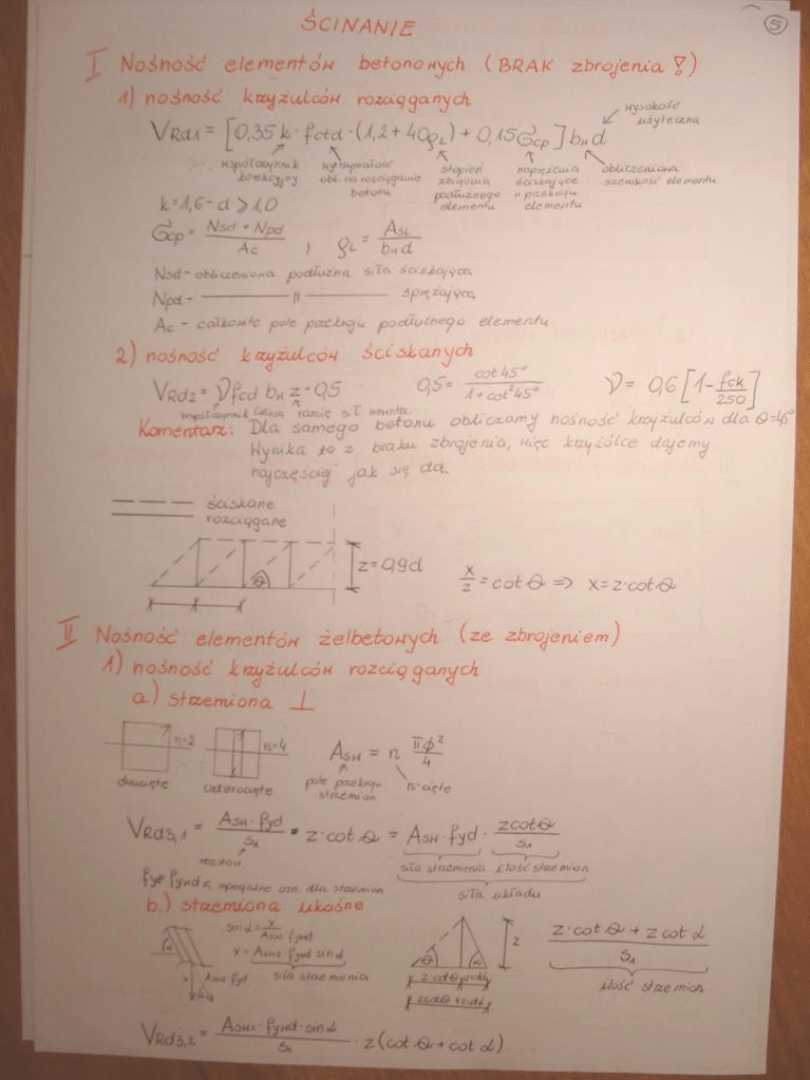 5
ŚCINANIE
I Nośność elementów betonowych (BRAK zbrojenia !)
1) nośność krzyżulców rozciąganych
V_Rd1 = [0,35 k · fctd · (1,2 + 40 ρ_L) + 0,15 σ_cp] b_w d
wysokość użyteczna
współczynnik korekcyjny
wytrzymałość obl. na rozciąganie betonu
stopień zbrojenia podłużnego elementu
naprężenia ściskające w przekroju elementu
obliczeniowa szerokość elementu
k = 1,6 - d ≥ 1,0
σ_cp = (Nsd + Npd) / Ac , ρ_L = A_SL / (b_w d)
Nsd - obliczeniowa podłużna siła ściskająca
Npd - —— 〃 —— sprężająca
Ac - całkowite pole przekroju podłużnego elementu
2) nośność krzyżulców ściskanych
V_Rd2 = ν fcd b_w z · 0,5    0,5 = cot 45° / (1 + cot² 45°)    ν = 0,6 [1 - fck/250]
współczynnik ramię sił wewnętrz.
Komentarz: Dla samego betonu obliczamy nośność krzyżulców dla θ=45°
Wynika to z braku zbrojenia, więc krzyżólce dajemy
najczęściej jak się da.
ściskane
rozciągane
θ
z = 0,9d    x/z = cot θ ⇒ x = z · cot θ
II Nośność elementów żelbetowych (ze zbrojeniem)
1) nośność krzyżulców rozciąganych
a.) strzemiona ⊥
n=2    n=4    A_sw = n πφ²/4
dwucięte    czterocięte    pole przekroju strzemion    n-cięte
V_Rd3,1 = (A_sw · fyd) / s₁ · z · cot θ = A_sw · fyd · (z cot θ) / s₁
rozstaw    siła strzemienia    ilość strzemion
siła układu
b.) strzemiona ukośne
x = A_sw₂ fywd sin α
siła strzemienia
θ    α    z
(z · cot θ + z cot α) / s₁
ilość strzemion
V_Rd3,2 = (A_sw₂ · fywd · sin α) / s₁ · z (cot θ + cot α)